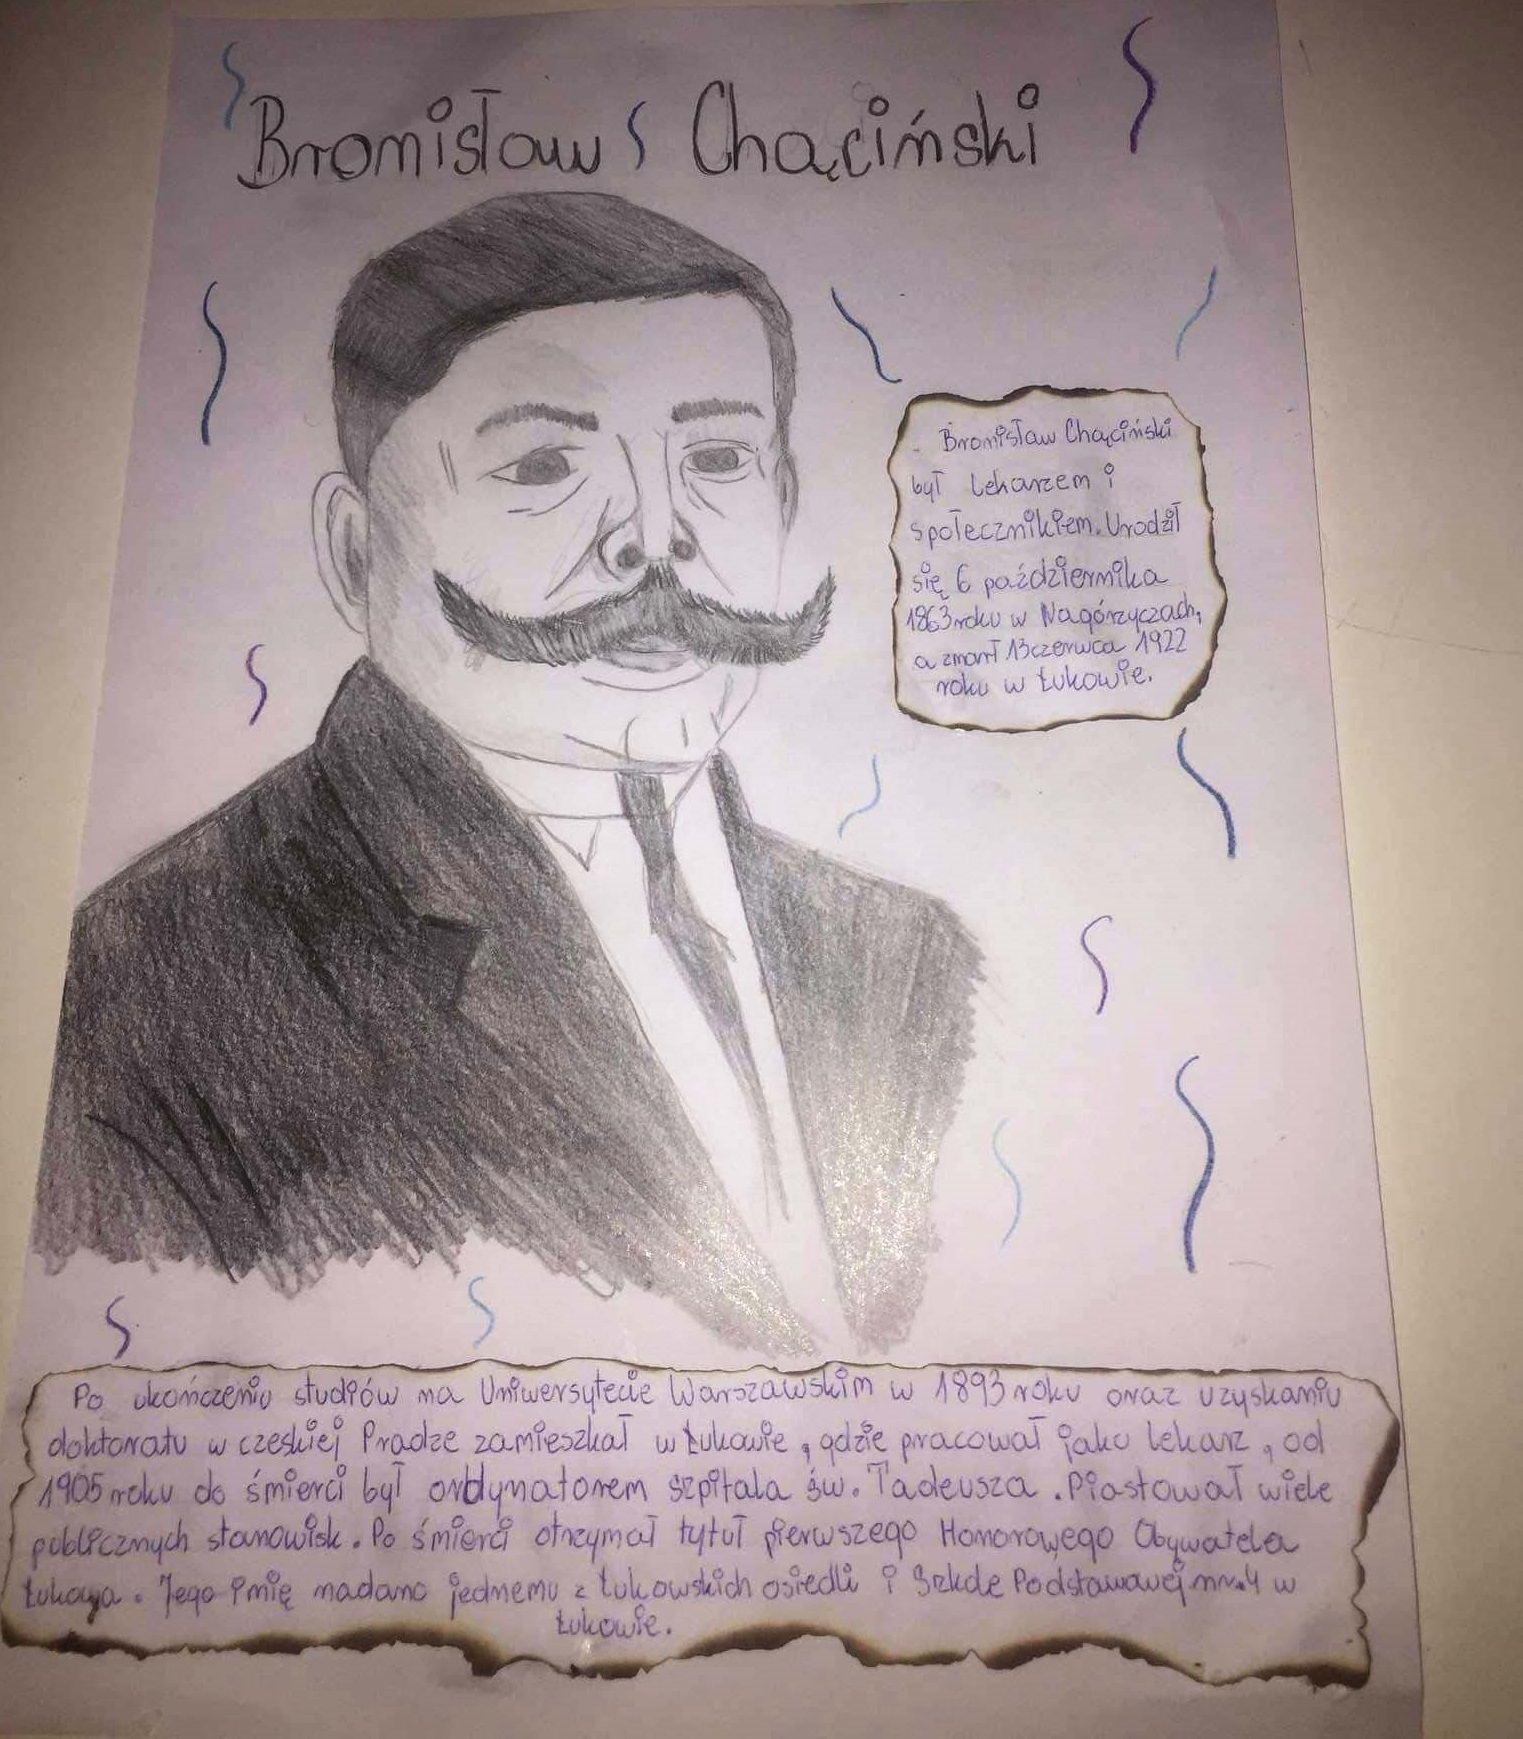 Bronisław Chąciński
Bronisław Chąciński
był lekarzem i
społecznikiem. Urodził
się 6 października
1863 roku w Nagórzyczach,
a zmarł 13 czerwca 1922
roku w Łukowie.
Po ukończeniu studiów na Uniwersytecie Warszawskim w 1893 roku oraz uzyskaniu
doktoratu w czeskiej Pradze zamieszkał w Łukowie, gdzie pracował jako lekarz, od
1905 roku do śmierci był ordynatorem szpitala św. Tadeusza. Piastował wiele
publicznych stanowisk. Po śmierci otrzymał tytuł pierwszego Honorowego Obywatela
Łukowa. Jego imię nadano jednemu z Łukowskich osiedli i Szkole Podstawowej nr. 4 w
Łukowie.